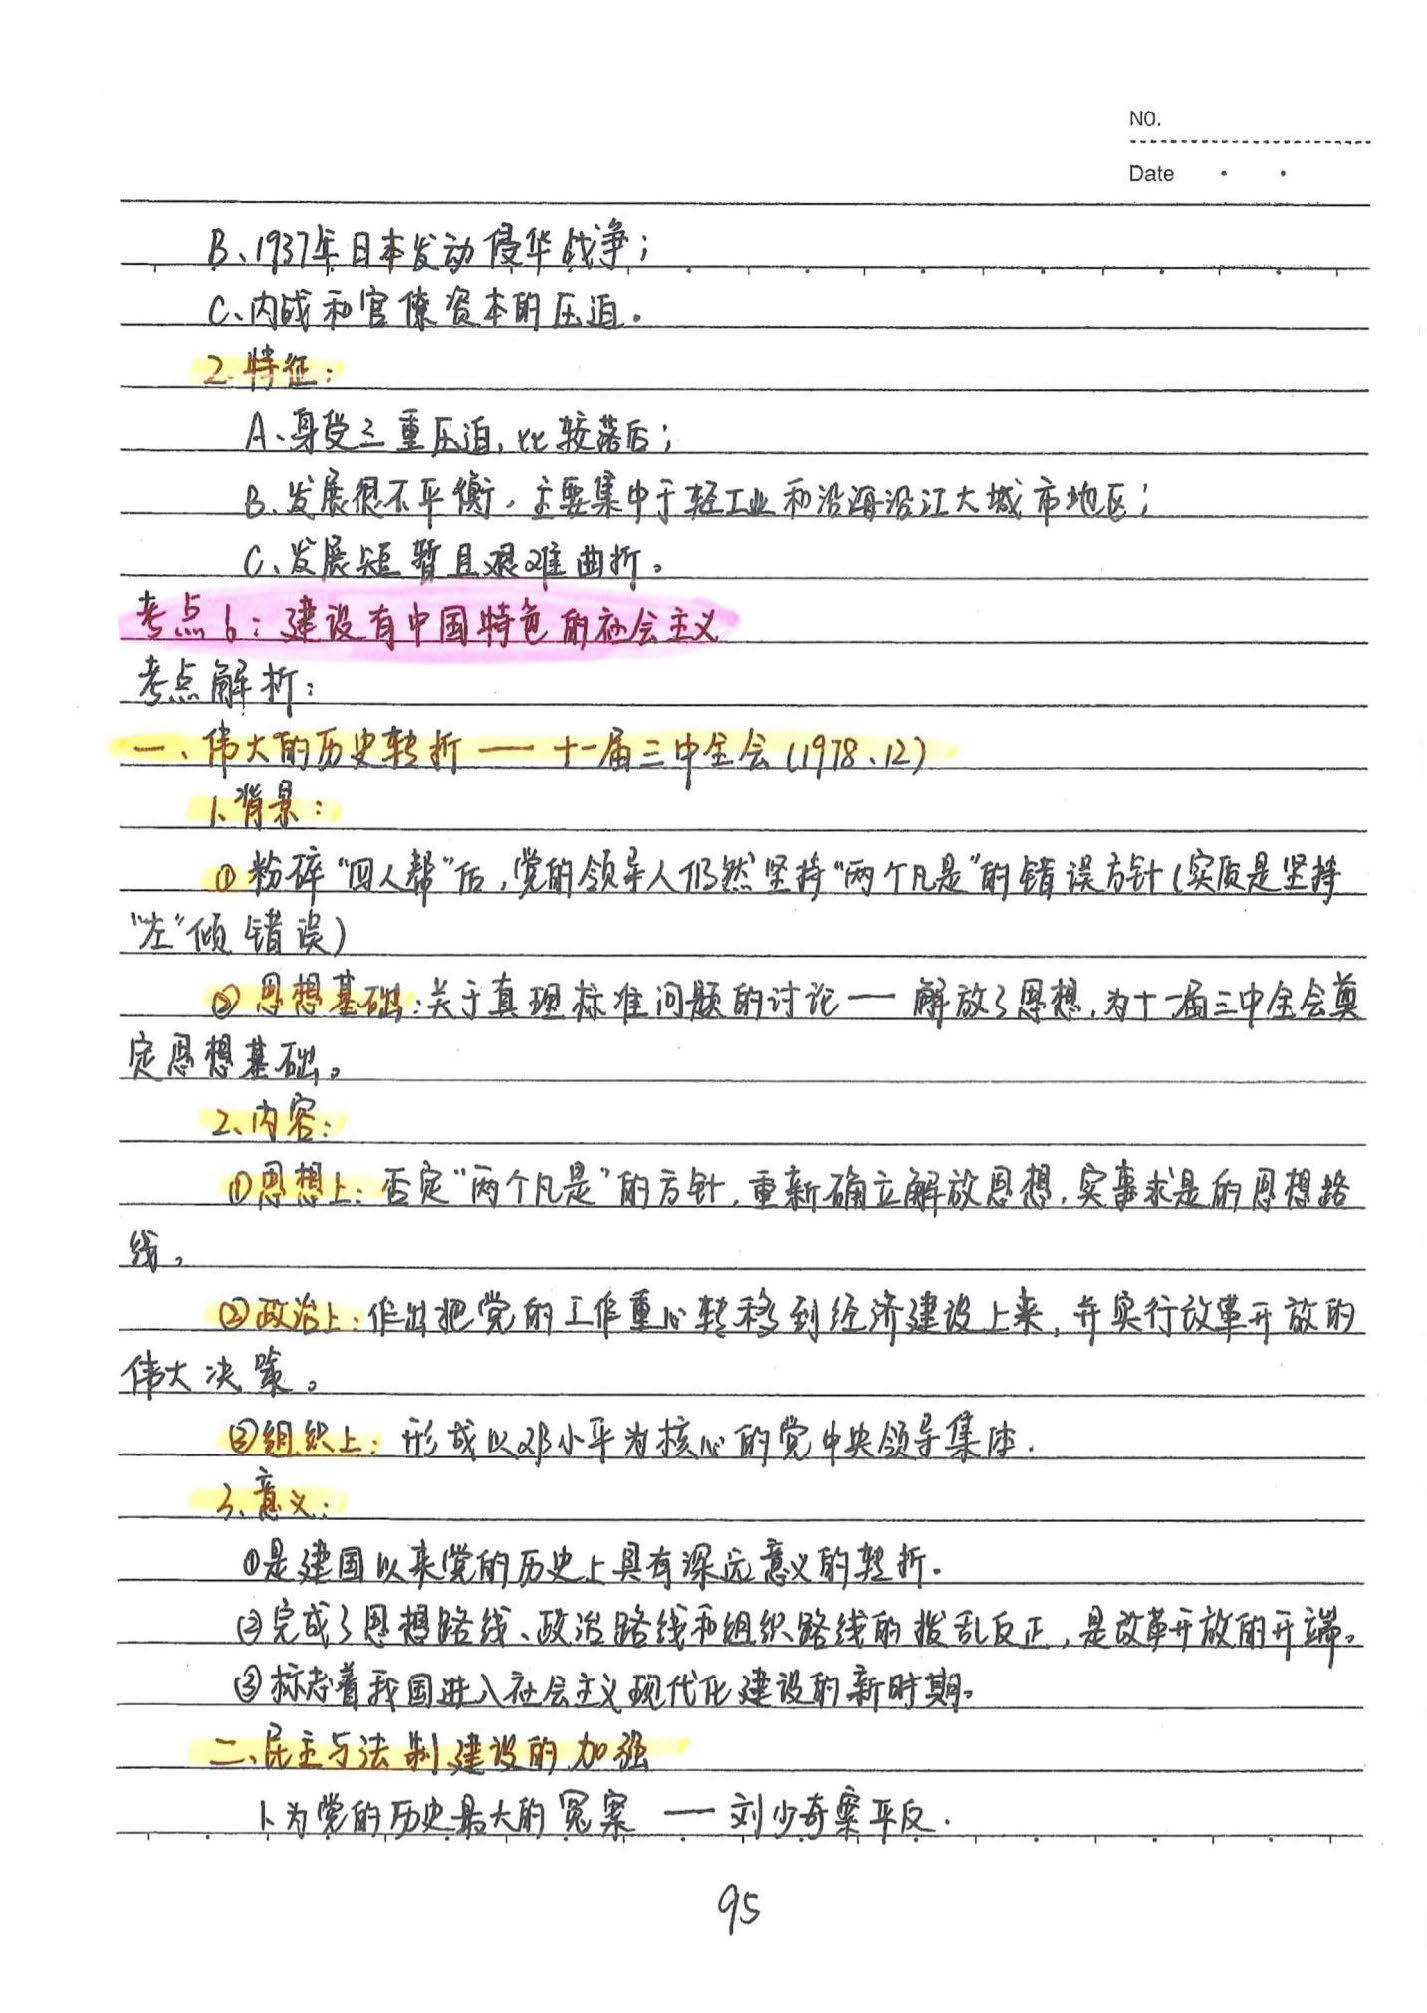 NO.
Date
B、1937年日本发动侵华战争；
C、内战和官僚资本的压迫。
2. 特征：
A、身受三重压迫，比较落后；
B、发展很不平衡，主要集中于轻工业和沿海沿江大城市地区；
C、发展短暂且艰难曲折。
考点6：建设有中国特色的社会主义
考点解析：
一、伟大的历史转折——十一届三中全会（1978、12）
1、背景：
①粉碎“四人帮”后，党的领导人仍然坚持“两个凡是”的错误方针（实质是坚持
“左”倾错误）
②思想基础：关于真理标准问题的讨论——解放了思想，为十一届三中全会奠
定思想基础。
2、内容：
①思想上：否定“两个凡是”的方针，重新确立解放思想，实事求是的思想路
线。
②政治上：作出把党的工作重心转移到经济建设上来，并实行改革开放的
伟大决策。
③组织上：形成以邓小平为核心的党中央领导集体.
3、意义：
①是建国以来党的历史上具有深远意义的转折.
②完成了思想路线、政治路线和组织路线的拨乱反正，是改革开放的开端。
③标志着我国进入社会主义现代化建设的新时期。
二、民主与法制建设的加强
1、为党的历史最大的冤案——刘少奇案平反.
95